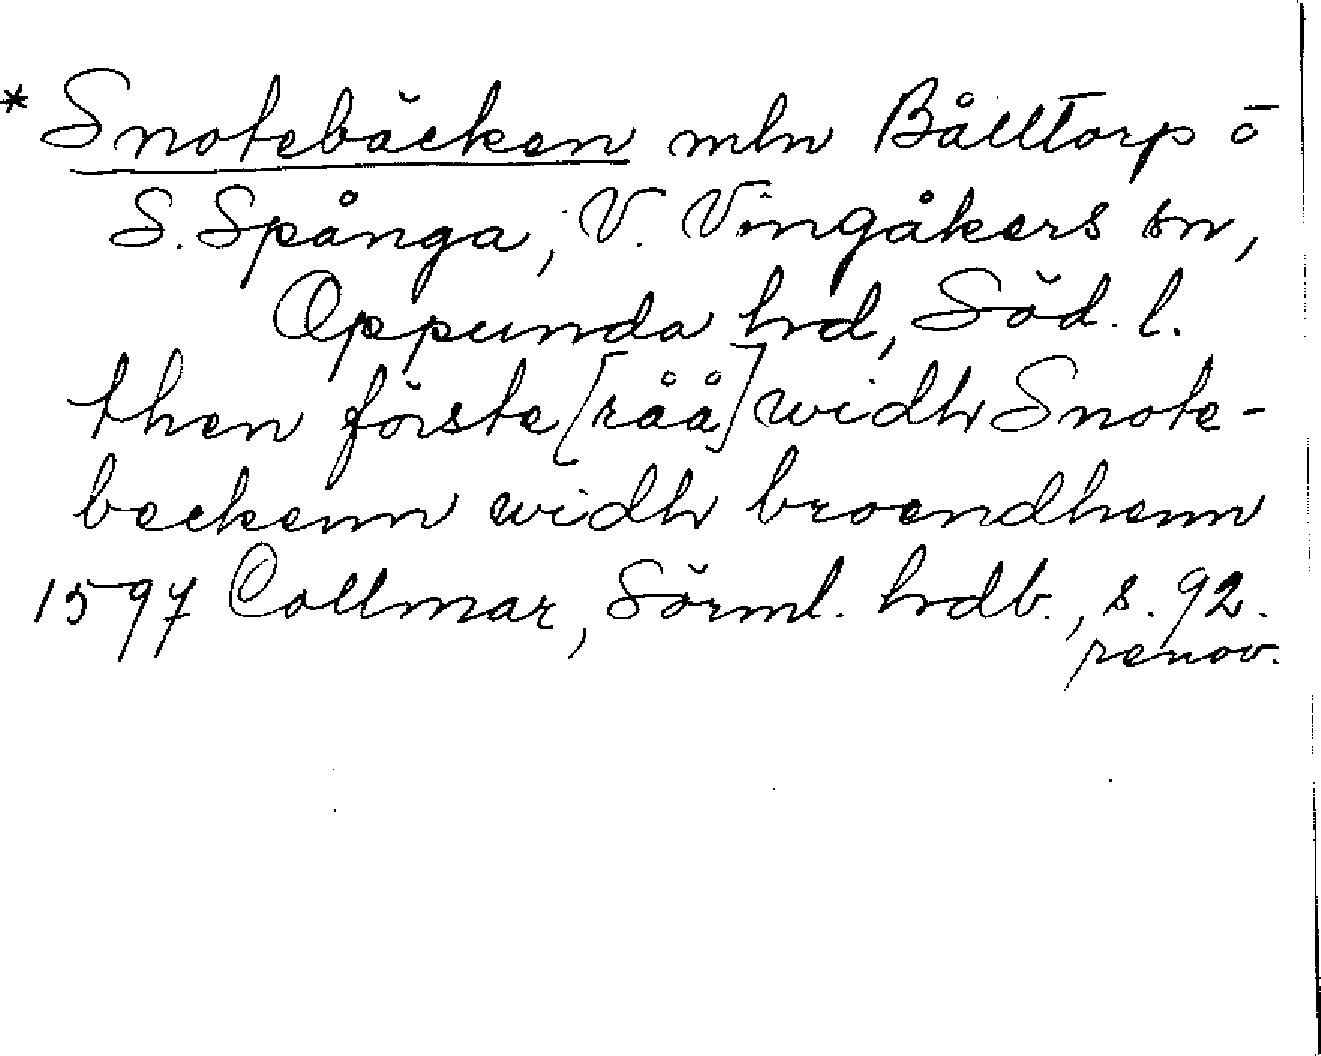 * Snotebäcken mln Bålltorp o
S. Spånga, V. Vingåkers sn,
Oppunda hd, Söd. l.
then förste [råå] widh Snote-
beckenn widh broendhenn
1597 Collmar, Sörml. hdb., s. 92.
renov.